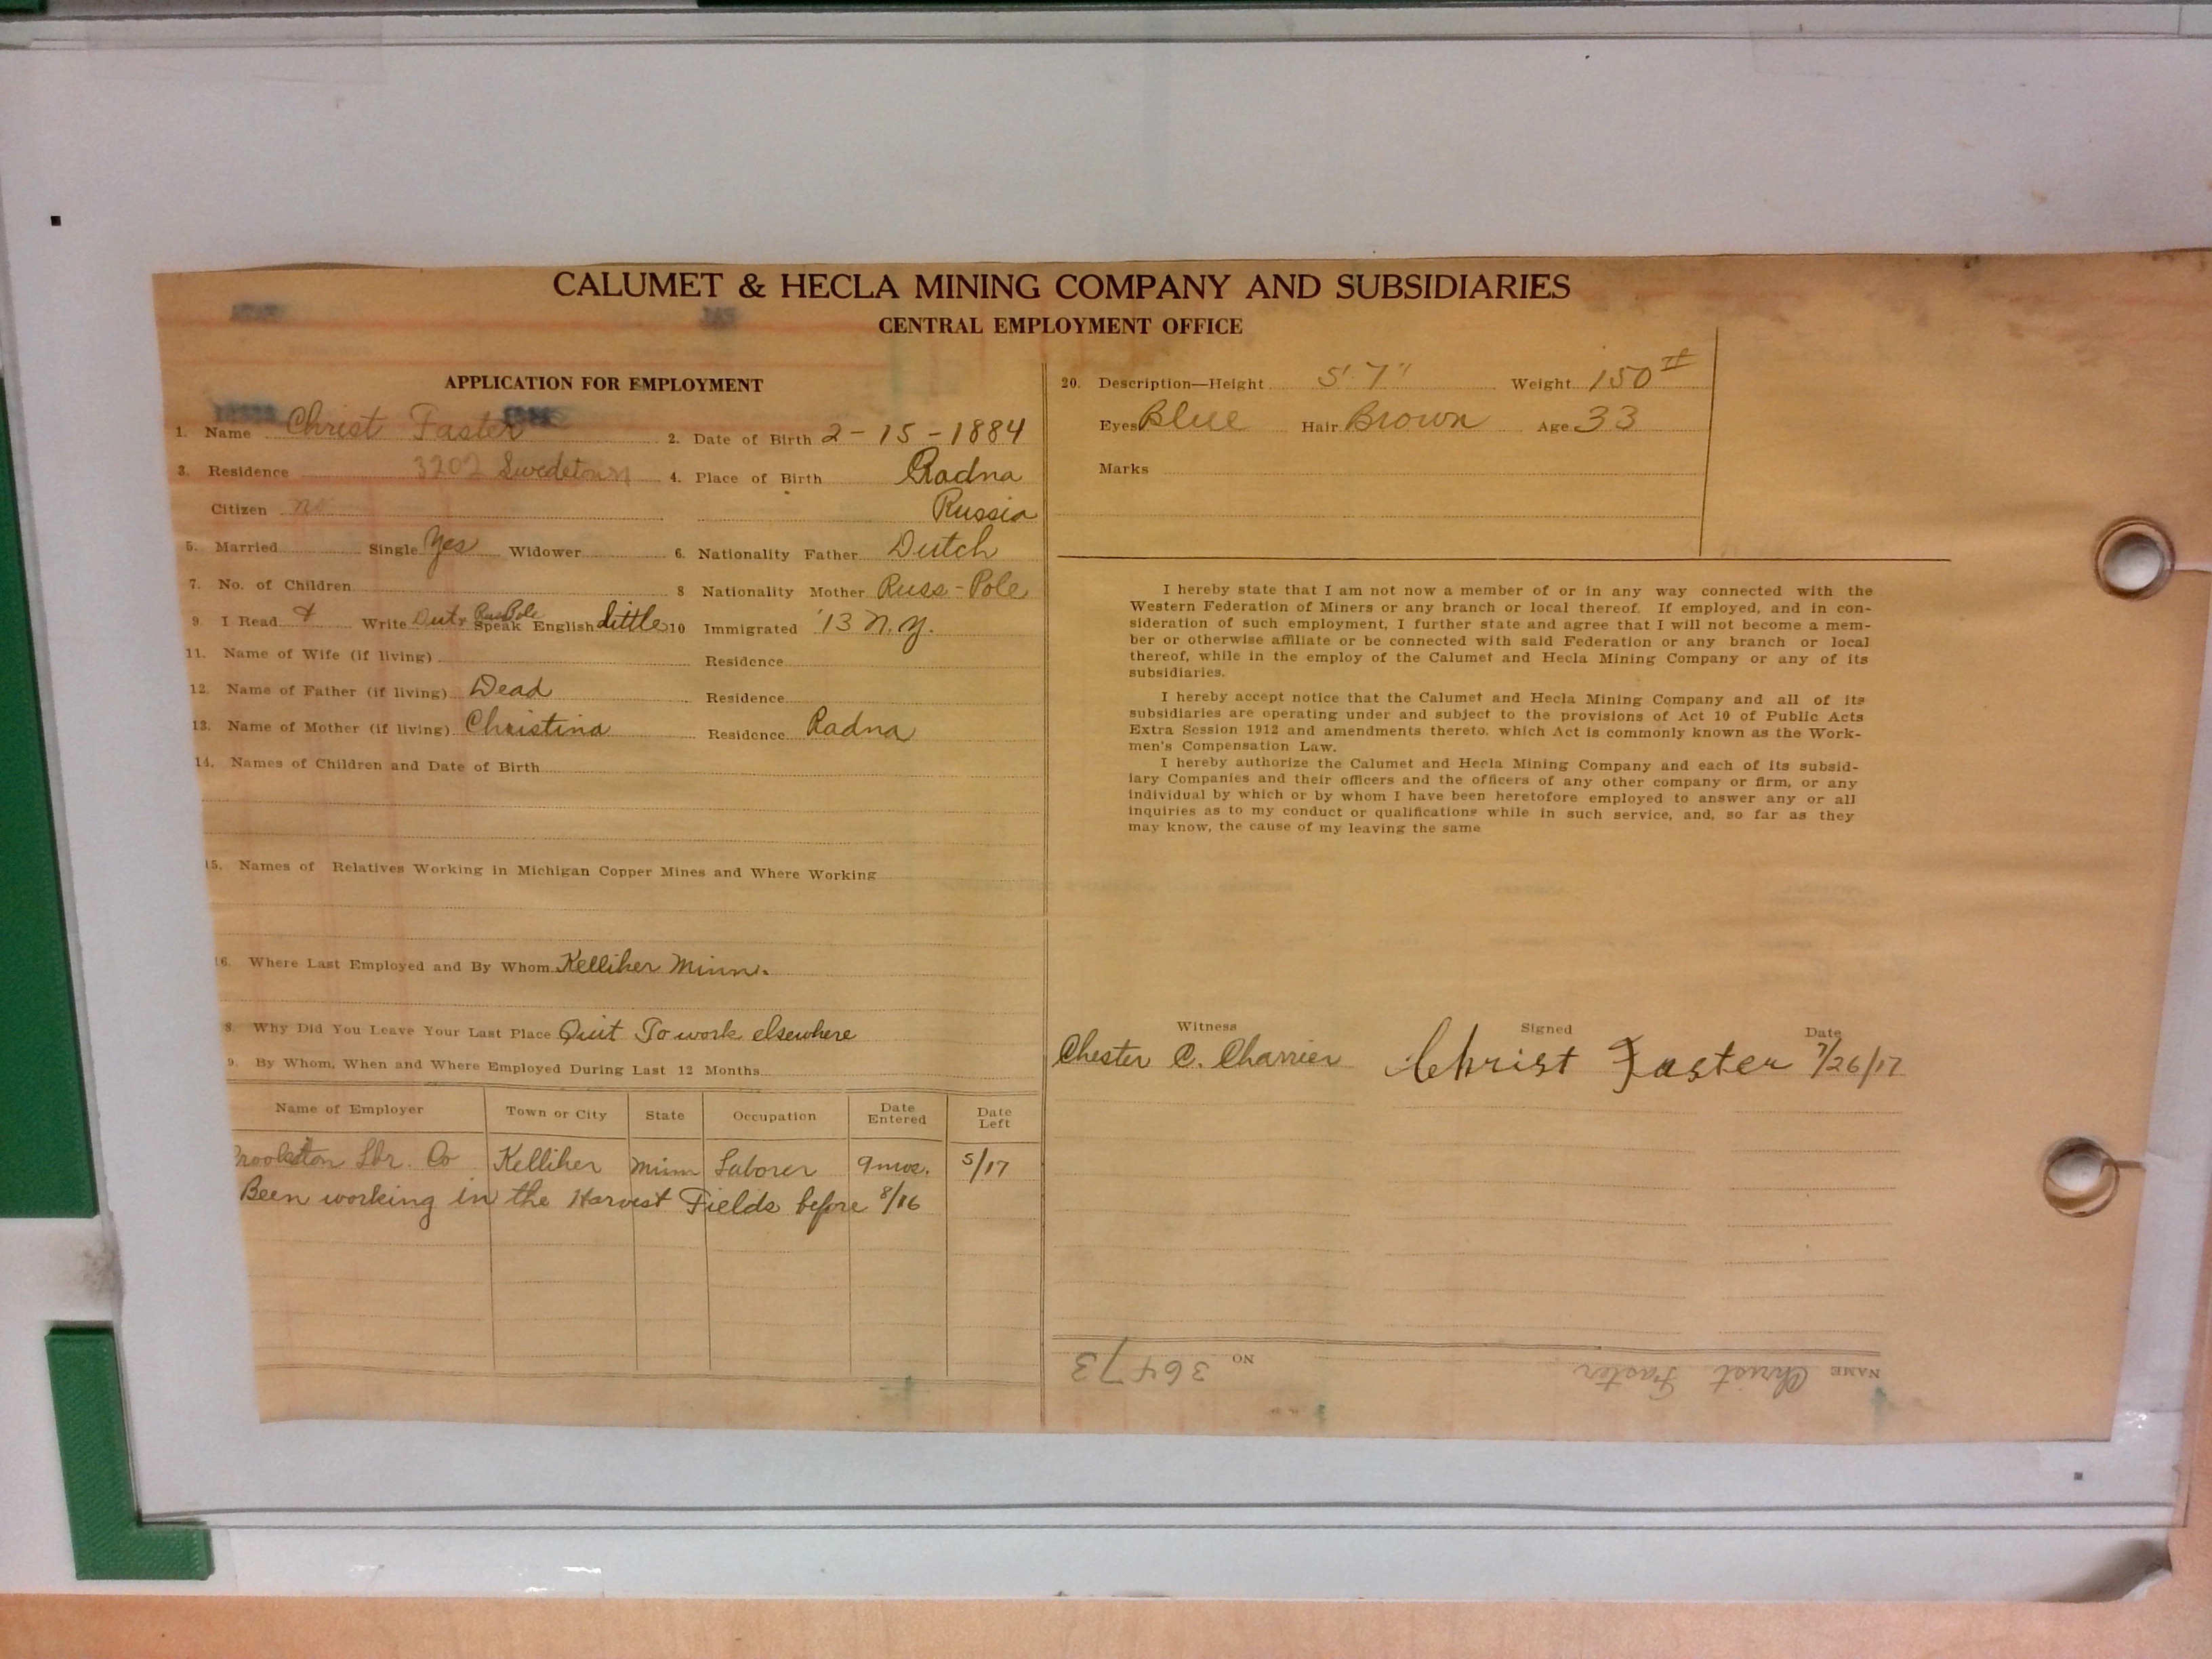 CALUMET & HECLA MINING COMPANY AND SUBSIDIARIES
CENTRAL EMPLOYMENT OFFICE
APPLICATION FOR EMPLOYMENT
1. Name Christ Faster 2. Date of Birth 2-15-1884
3. Residence 3202 Swedetown 4. Place of Birth Radna
Citizen no Russia
5. Married Single Yes Widower 6. Nationality Father Dutch
7. No. of Children 8 Nationality Mother Russ-Pole
9. I Read & Write Dut. Rus Pole Speak English Little 10 Immigrated '13 N.Y.
11. Name of Wife (if living) Residence
12. Name of Father (if living) Dead Residence
13. Name of Mother (if living) Christina Residence Radna
14. Names of Children and Date of Birth
15. Names of Relatives Working in Michigan Copper Mines and Where Working
16. Where Last Employed and By Whom Kelliher Minn.
8. Why Did You Leave Your Last Place Quit To work elsewhere
9. By Whom, When and Where Employed During Last 12 Months
Name of Employer Town or City State Occupation Date Entered Date Left
Lbr. Co Kelliher Minn Laborer 9 mos. 5/17
Been working in the Harvest Fields before 8/16
20. Description—Height 5' 7" Weight 150 #
Eyes Blue Hair Brown Age 33
Marks
I hereby state that I am not now a member of or in any way connected with the
Western Federation of Miners or any branch or local thereof. If employed, and in con-
sideration of such employment, I further state and agree that I will not become a mem-
ber or otherwise affiliate or be connected with said Federation or any branch or local
thereof, while in the employ of the Calumet and Hecla Mining Company or any of its
subsidiaries.
I hereby accept notice that the Calumet and Hecla Mining Company and all of its
subsidiaries are operating under and subject to the provisions of Act 10 of Public Acts
Extra Session 1912 and amendments thereto, which Act is commonly known as the Work-
men's Compensation Law.
I hereby authorize the Calumet and Hecla Mining Company and each of its subsid-
iary Companies and their officers and the officers of any other company or firm, or any
individual by which or by whom I have been heretofore employed to answer any or all
inquiries as to my conduct or qualifications while in such service, and, so far as they
may know, the cause of my leaving the same
Witness Signed Date
Chester C. Charrier Christ Faster 7/26/17
NAME Christ Faster NO 36473